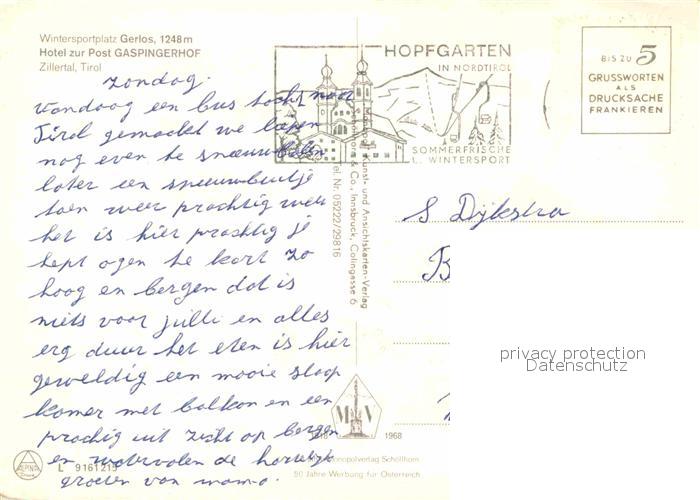 Wintersportplatz Gerlos, 1248 m
Hotel zur Post GASPINGERHOF
Zillertal, Tirol
zondag.
vandaag een bus tocht naar
Tirol gemaakt we lopen
nog even te
later een sneeuwbuitje
toen weer prachtig weer
het is hier prachtig je
hept ogen te kort zo
hoog en bergen dat is
niets voor jullie en alles
erg duur het eten is hier
geweldig een mooie slaap
kamer met balkon en een
prachig uit zicht op bergen
en watervalen de hartelijk
groeten van mama.
HOPFGARTEN
IN NORDTIROL
SOMMERFRISCHE
U. WINTERSPORT
BIS ZU 5
GRUSSWORTEN
ALS
DRUCKSACHE
FRANKIEREN
Kunst- und Ansichtskarten-Verlag
& Co., Innsbruck, Colingasse 6
Tel. Nr. 05222/29816
S Dijkstra
B
privacy protection
Datenschutz
M V
1918 1968
Monopolverlag Schöllhorn
50 Jahre Werbung für Österreich
ALPINA
L 9161215